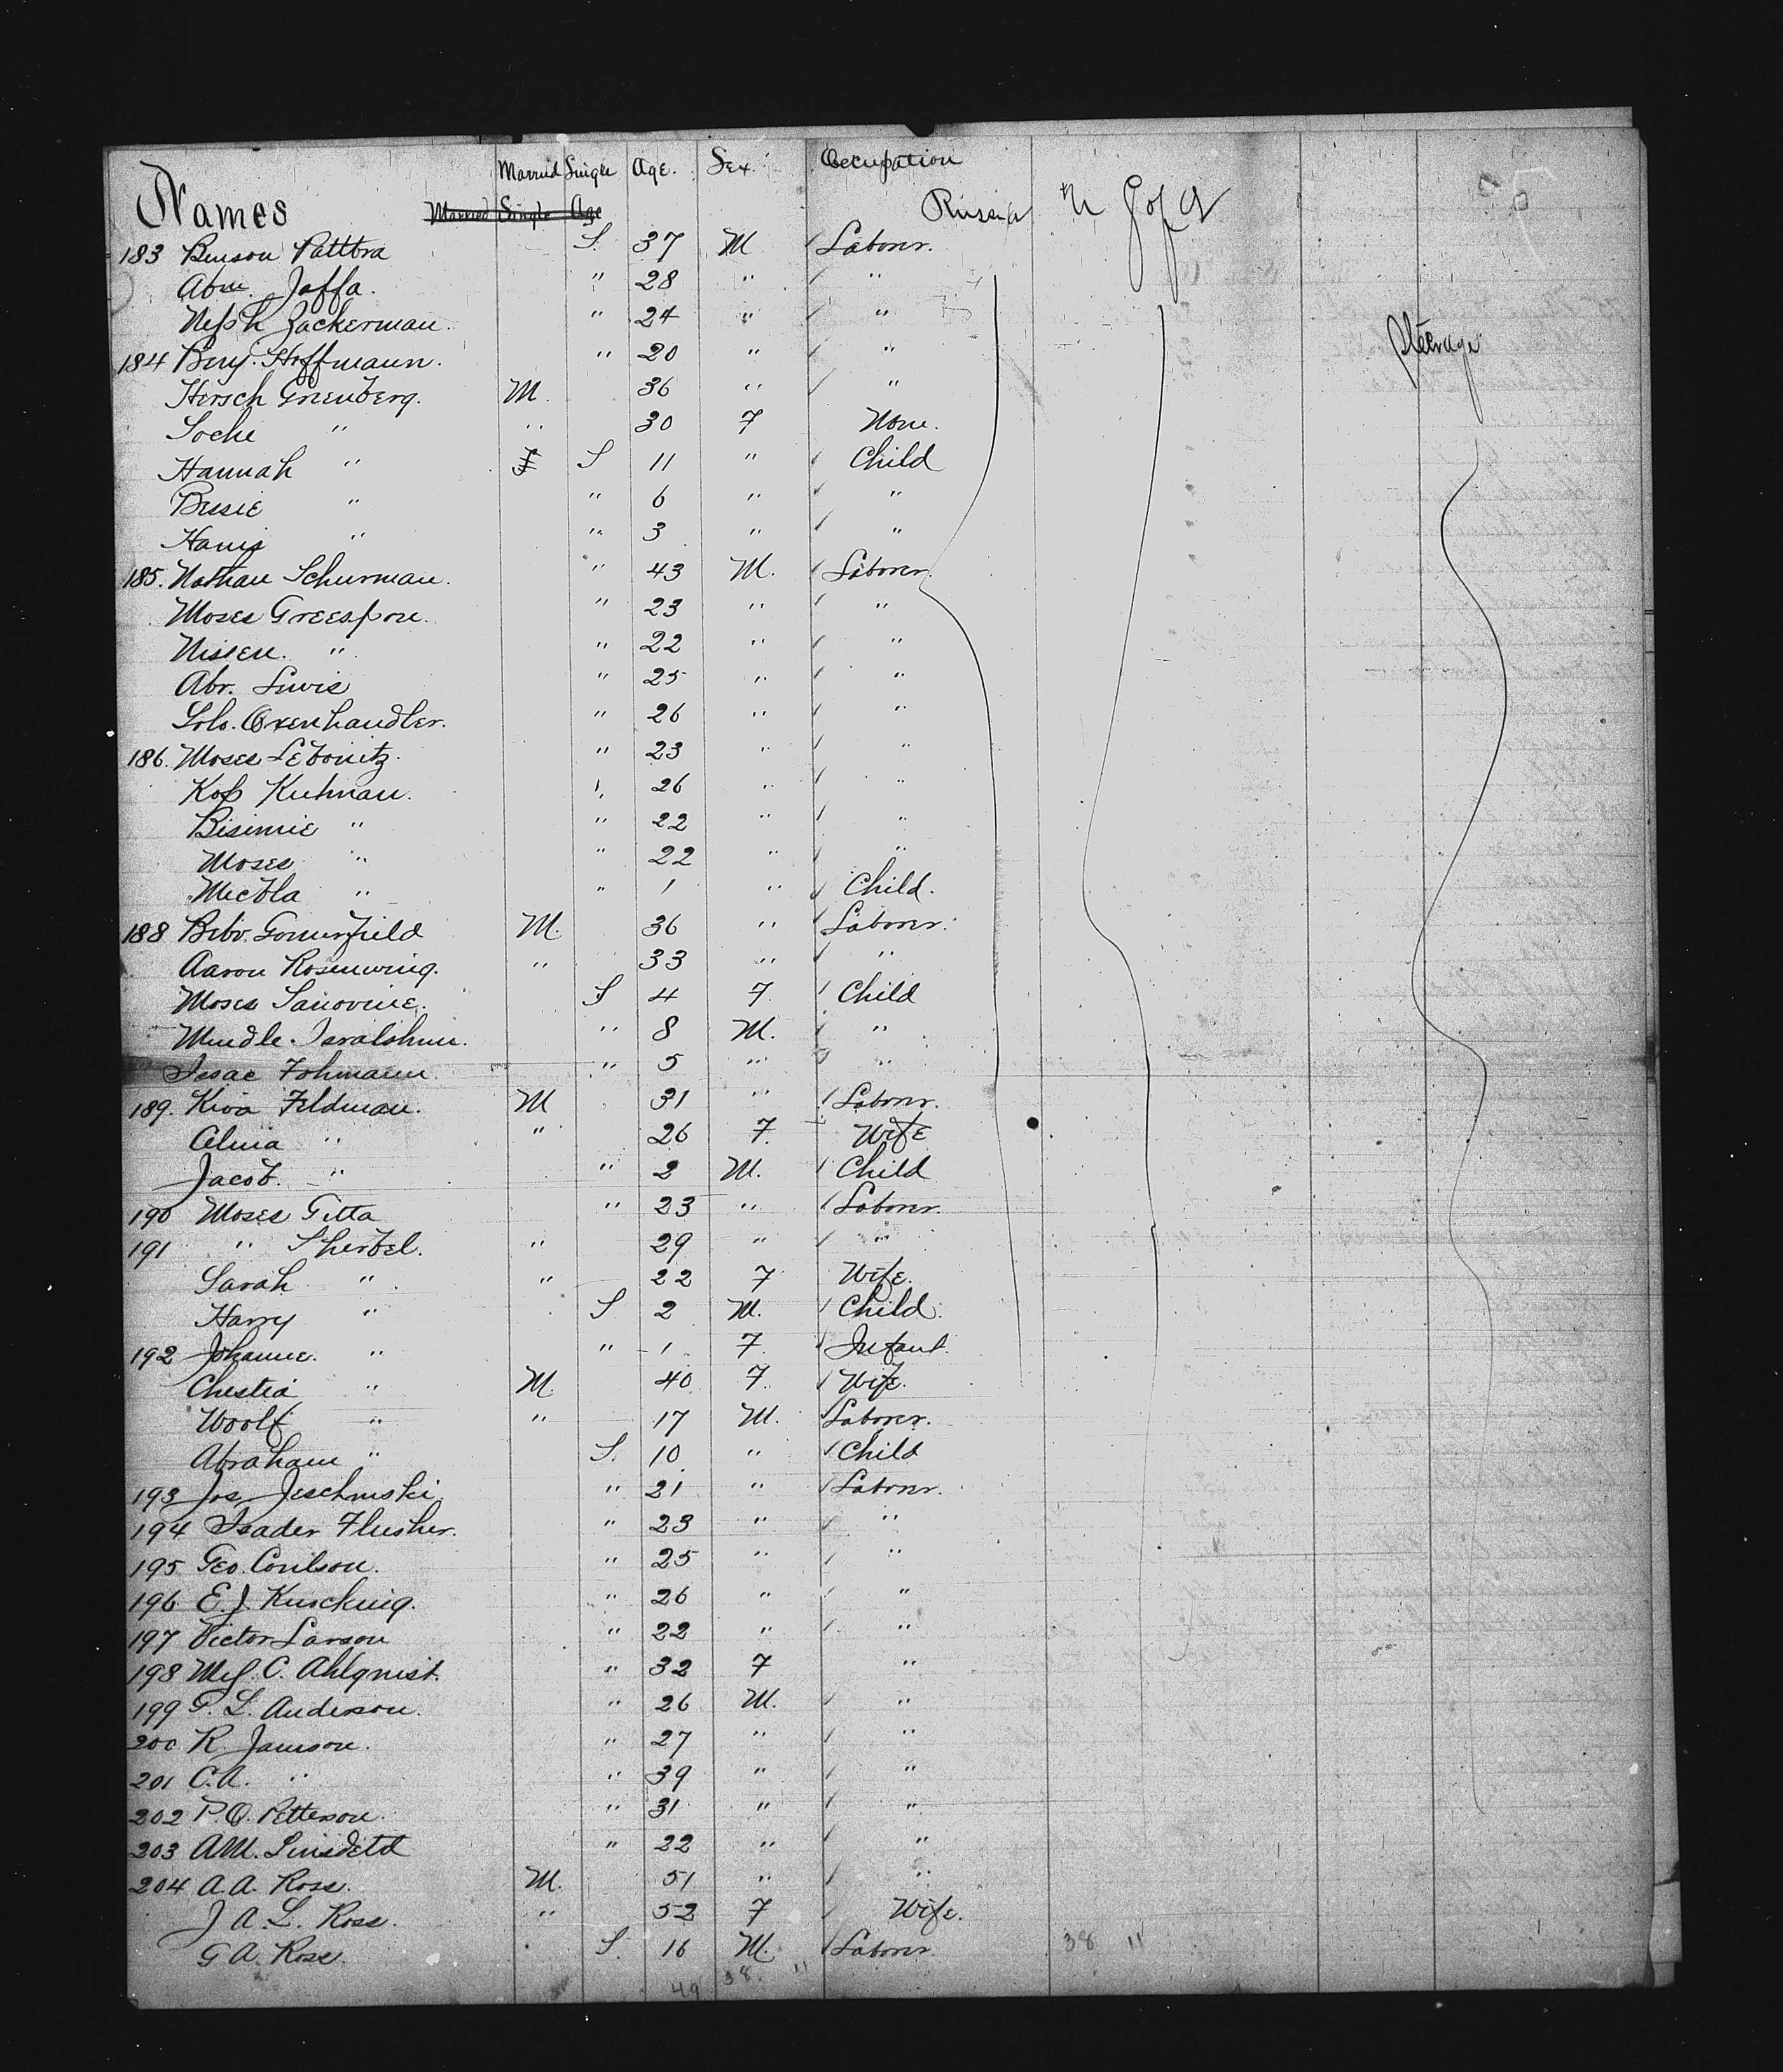 Married Single Age. Sex. Occupation
Names Married Single Age Russia
183 Benson Pattbra S. 37 M Laborer.
Abm. Jaffa. " 28 " "
Zackerman. " 24 " "
184 Benj. Hoffmann. " 20 " "
Hersch Greenberg. M. 36 " "
Soche " " 30 F None.
Hannah " S 11 " Child
Bessie " " 6 " "
Hanis " " 3 " "
185. Nathan Schurman. " 43 M. Laborer.
Moses Greespon. " 23 " "
Nissen. " " 22 " "
Abr. Lewis " 25 " "
Solo. Oxenhandler. " 26 " "
186. Moses Lebovitz. " 23 " "
Kuhnau. " 26 " "
Bisimie " " 22 " "
Moses " " 22 " "
" " 1 " Child.
188 M. 36 " Laborer.
Aaron Rosenwing. " 33 " "
Moses S 4 F. Child
Mendle " 8 M. "
Isaac Fohmann. " 5 " "
189. Kiva Feldman. M 31 " Laborer.
" " 26 F. Wife
Jacob. " " 2 M. Child
190 Moses Gitta " 23 " Laborer.
191 " Sherbel. " 29 " "
Sarah " " 22 F Wife.
Harry " S 2 M. Child.
192 Johanne. " " 1 F. Infant.
Chestia " M. 40 F. Wife.
Woolf " " 17 M. Laborer.
Abraham " S. 10 " Child
193 Jos. Jeschmski. " 21 " Laborer.
194 Isader Flusher. " 23 " "
195 Geo. Conilson. " 25 " "
196 E. J. Kusching. " 26 " "
197 Victor Larson " 22 " "
198 C. Ahlqnist. " 32 F "
199 P. L. Anderson. " 26 M. "
200 R. Jamson. " 27 " "
201 C. A. " " 39 " "
202 P. O. Petterson. " 31 " "
203 A. M. " 22 " "
204 A. A. Ross. M. 51 " "
J A. L. Ross. " 52 F Wife.
G A. Ross. S. 16 M. Laborer. 38 11
49 38. 11
Steerage